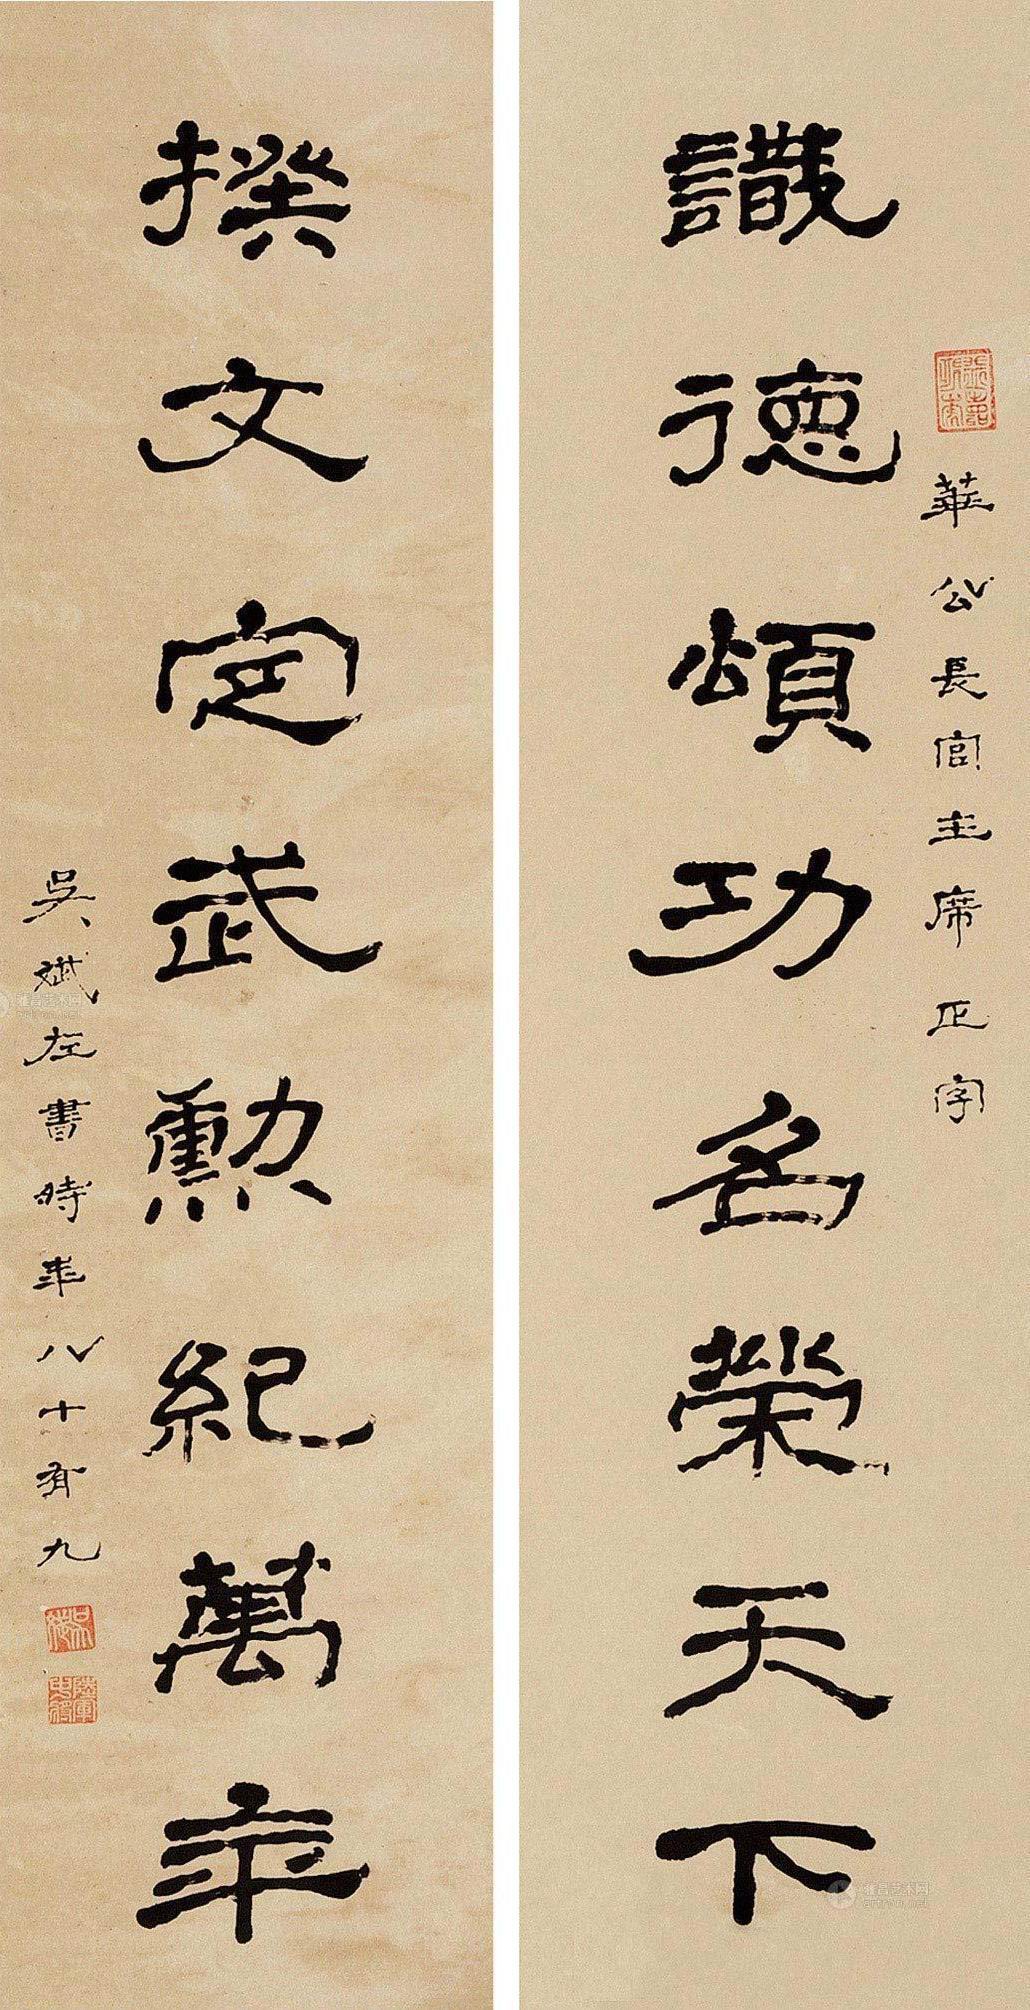 華公長官主席正字
識德頌功名榮天下
揆文定武勳紀萬年
吳斌左書時年八十有九
雅昌艺术网
artron.net